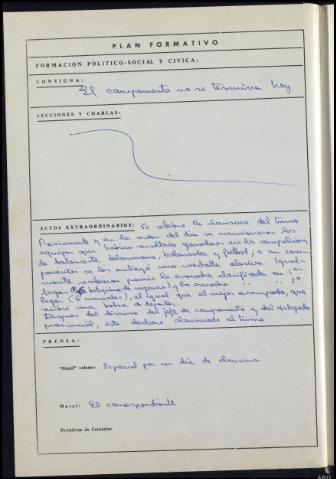 PLAN FORMATIVO
FORMACION POLITICO-SOCIAL Y CIVICA:
CONSIGNA:
El campamento no se termina hoy
LECCIONES Y CHARLAS:
ACTOS EXTRAORDINARIOS: Se celebró la clausura del turno
Previamente y en la orden del día se mencionaron los
equipos que habían resultado ganadores en las competiciones
de baloncesto, balonmano, balonvolea y futbol; a sus com
ponentes se les entregó una medalla alusiva. Igual-
mente recibieron premio la escuadra clasificada en 1er
lugar (6 bolígrafos de ), y la escuadra " " 2º
lugar (6 ), al igual que el mejor acampado, que
recibió una bolsa de deportes.
Despues del discurso del jefe de campamento y del delegado
provincial, este declaró clausurado el turno
PRENSA:
"Mástil" volante: Especial por ser día de clausura
Mural: El correspondiente
Periódicos de Escuadra: